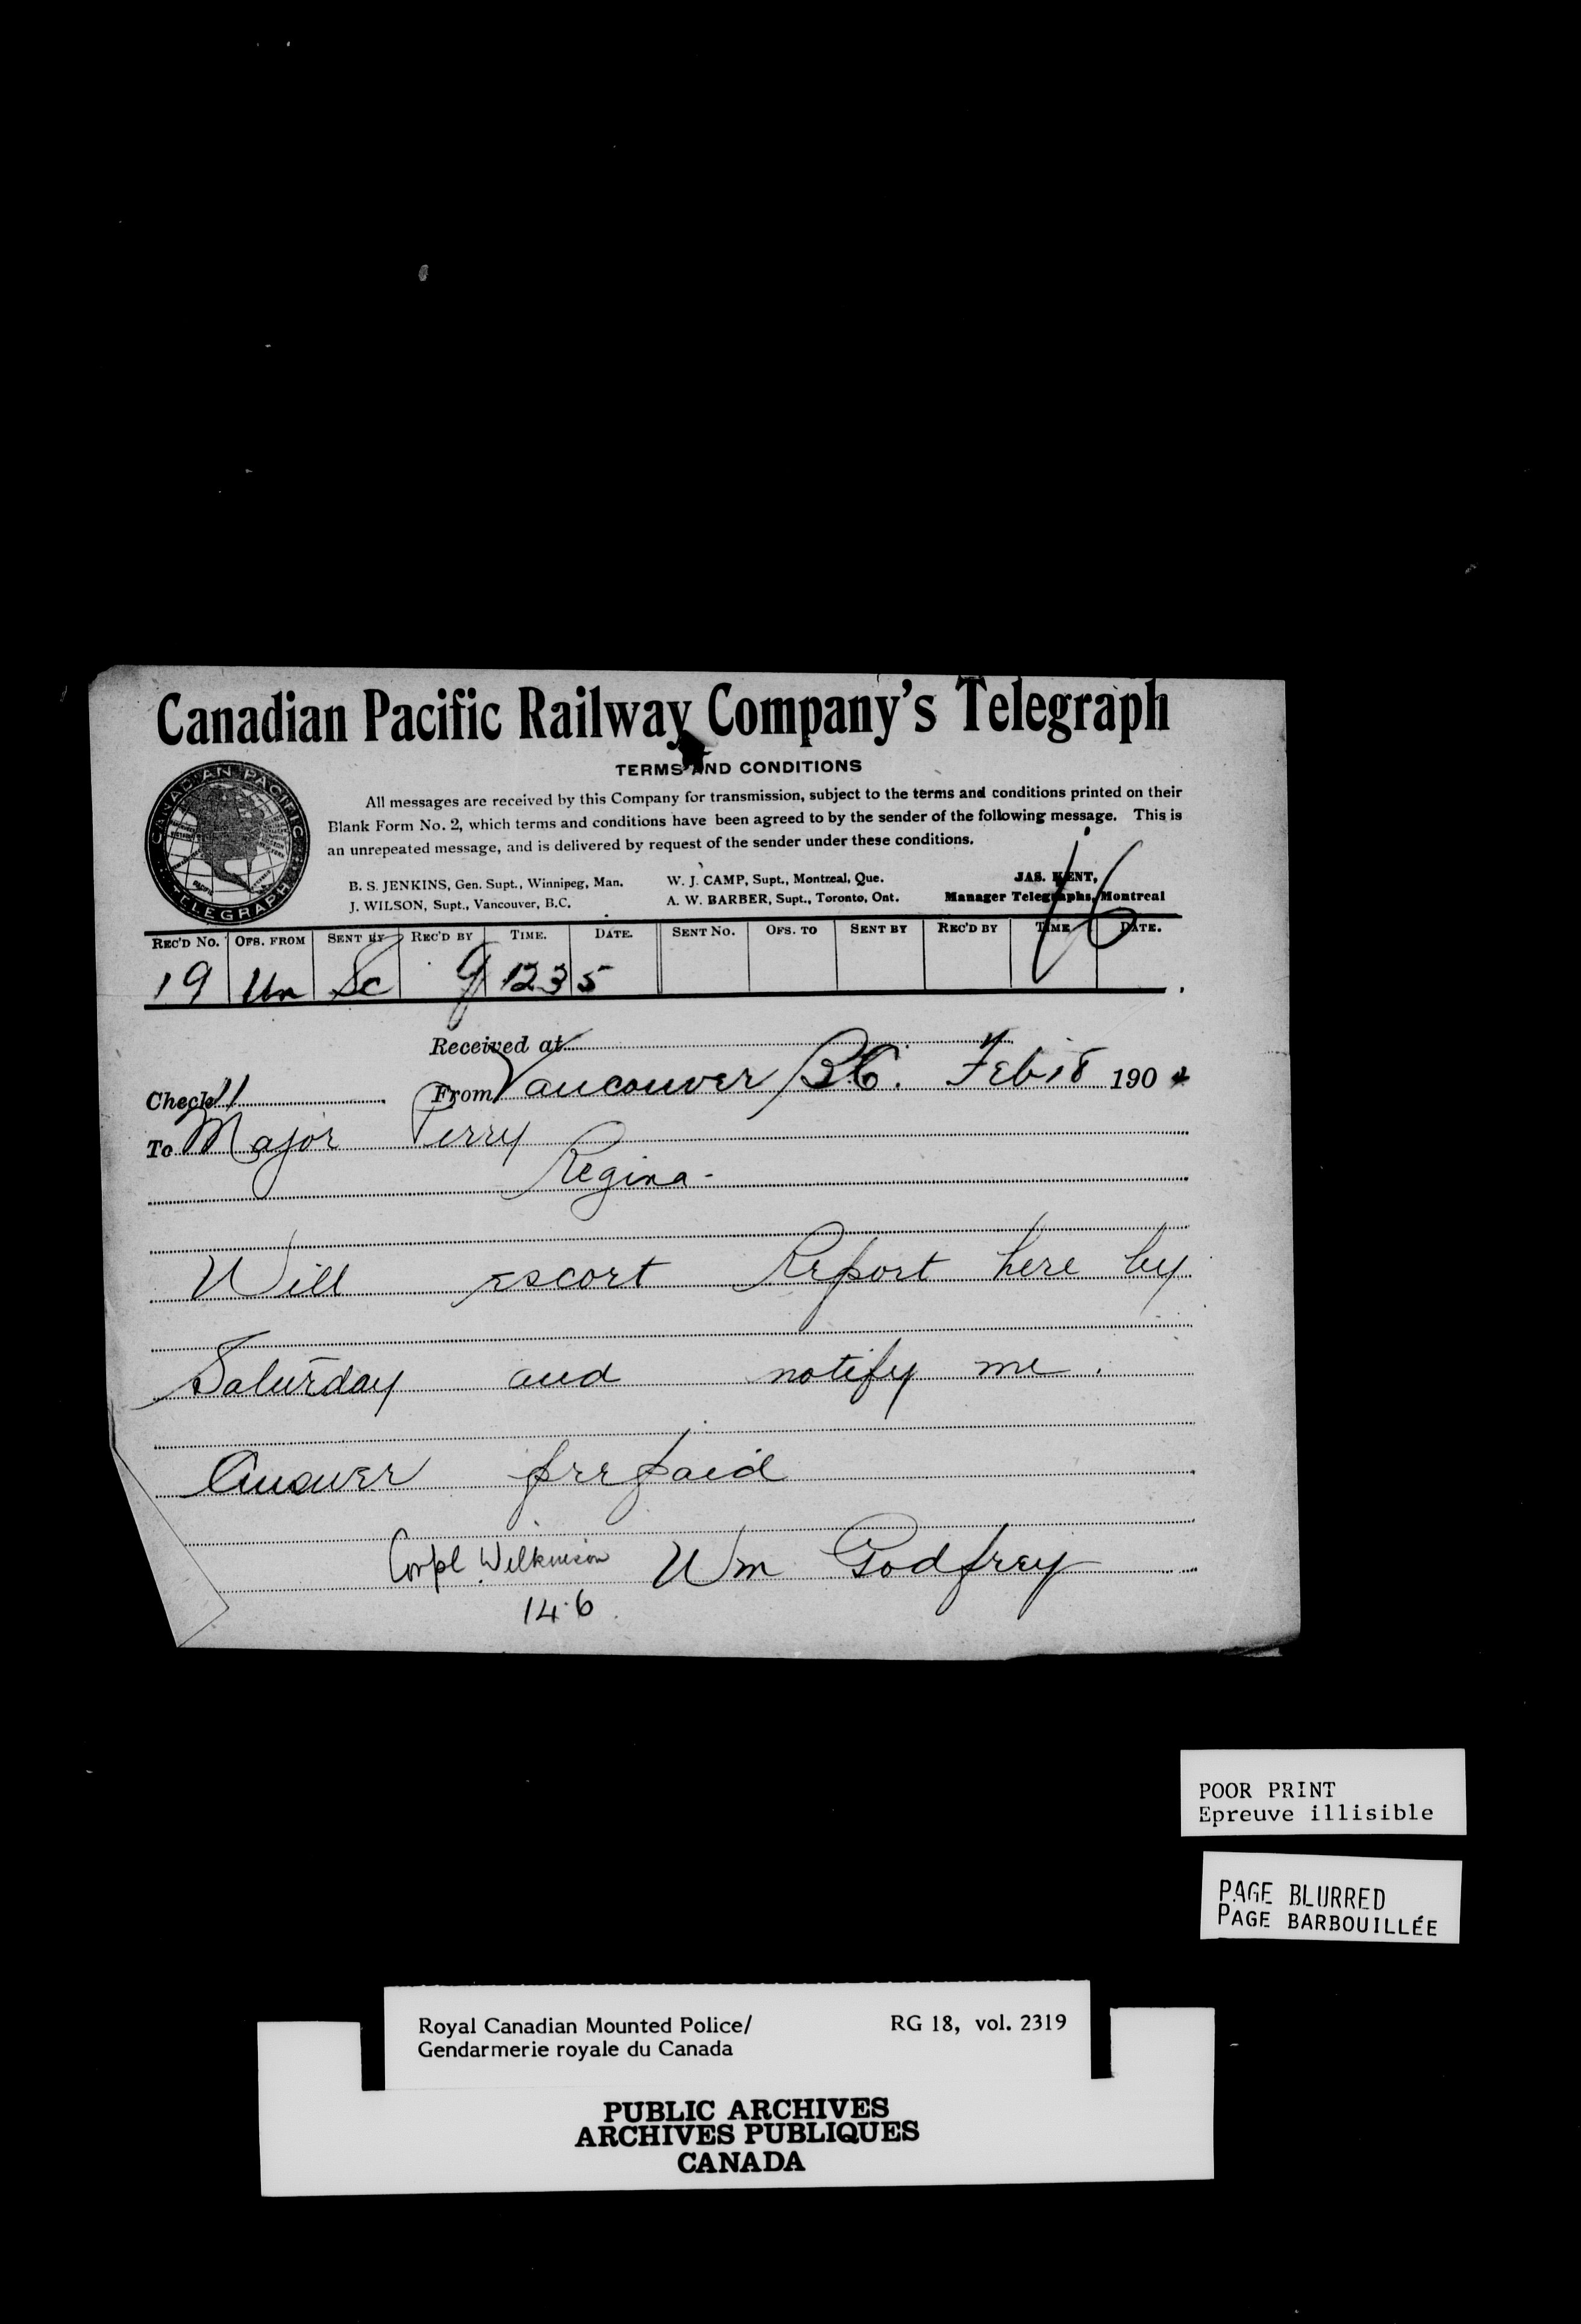 Canadian Pacific Railway Company's Telegraph
TERMS AND CONDITIONS
CANADIAN PACIFIC
TELEGRAPH
All messages are received by this Company for transmission, subject to the terms and conditions printed on their
Blank Form No. 2, which terms and conditions have been agreed to by the sender of the following message. This is
an unrepeated message, and is delivered by request of the sender under these conditions.
B. S. JENKINS, Gen. Supt., Winnipeg, Man. W. J. CAMP, Supt., Montreal, Que. JAS. KENT,
J. WILSON, Supt., Vancouver, B.C. A. W. BARBER, Supt., Toronto, Ont. Manager Telegraphs, Montreal
REC'D No. OFS. FROM SENT BY REC'D BY TIME. DATE. SENT No. OFS. TO SENT BY REC'D BY TIME DATE.
19 Un Sc G 1235
Received at
Check 11 From Vancouver BC. Feb 18 190
To Major Perry
Regina -
Will escort Report here by
Saturday and notify me.
Answer prepaid
Corpl Wilkinson Wm Godfrey
14.6
POOR PRINT
Epreuve illisible
PAGE BLURRED
PAGE BARBOUILLÉE
Royal Canadian Mounted Police/ RG 18, vol. 2319
Gendarmerie royale du Canada
PUBLIC ARCHIVES
ARCHIVES PUBLIQUES
CANADA